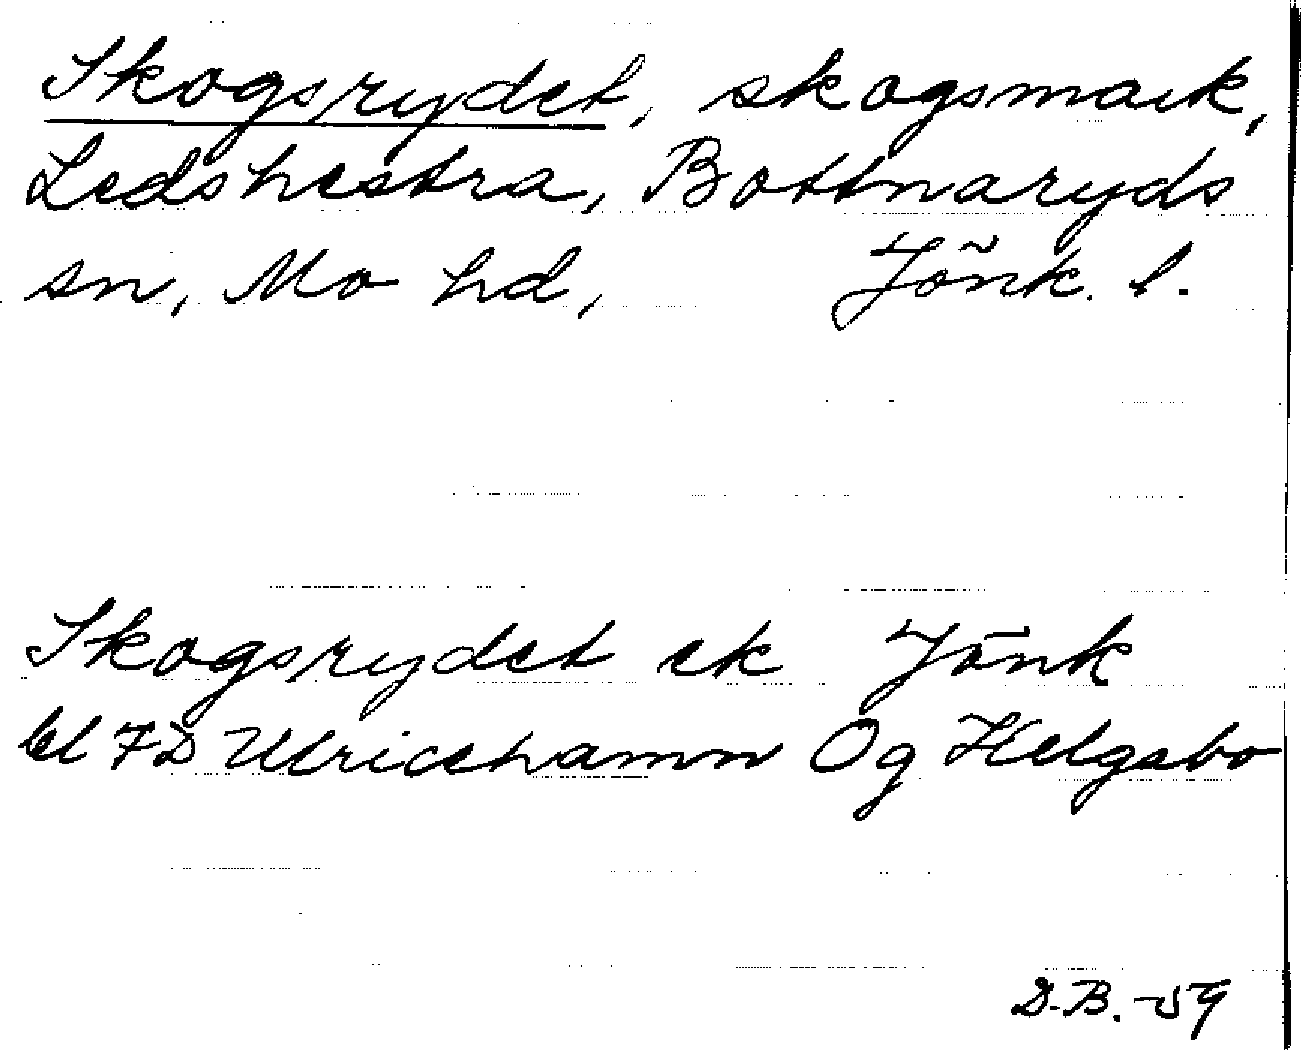 Skogsrydet, skogsmark,
Ledshestra, Bottnaryds
sn, Mo hd, Jönk. l.
Skogsrydet ek Jönk
bl 7D Ulricehamn Og Helgabo
D.B. -59